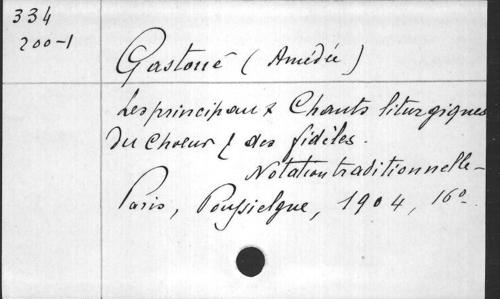 334
200-1
Gastoué (Amédée)
Les principaux Chants liturgiques
du Choeur & des fidèles.
Notation traditionnelle -
Paris, Poussielgue, 1904, 16º.